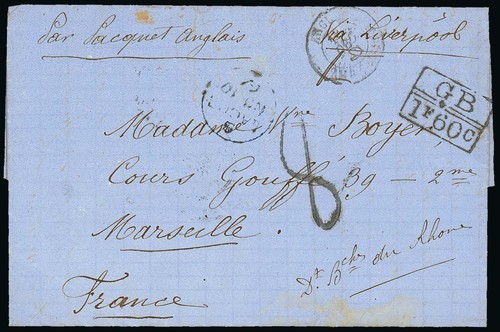 Par Pacquet Anglais
via Liverpool
GB
1F60c
Madame Vve Boyer
8
Cours Gouffé 39 – 2me
Marseille.
Dt. Bches du Rhone
France